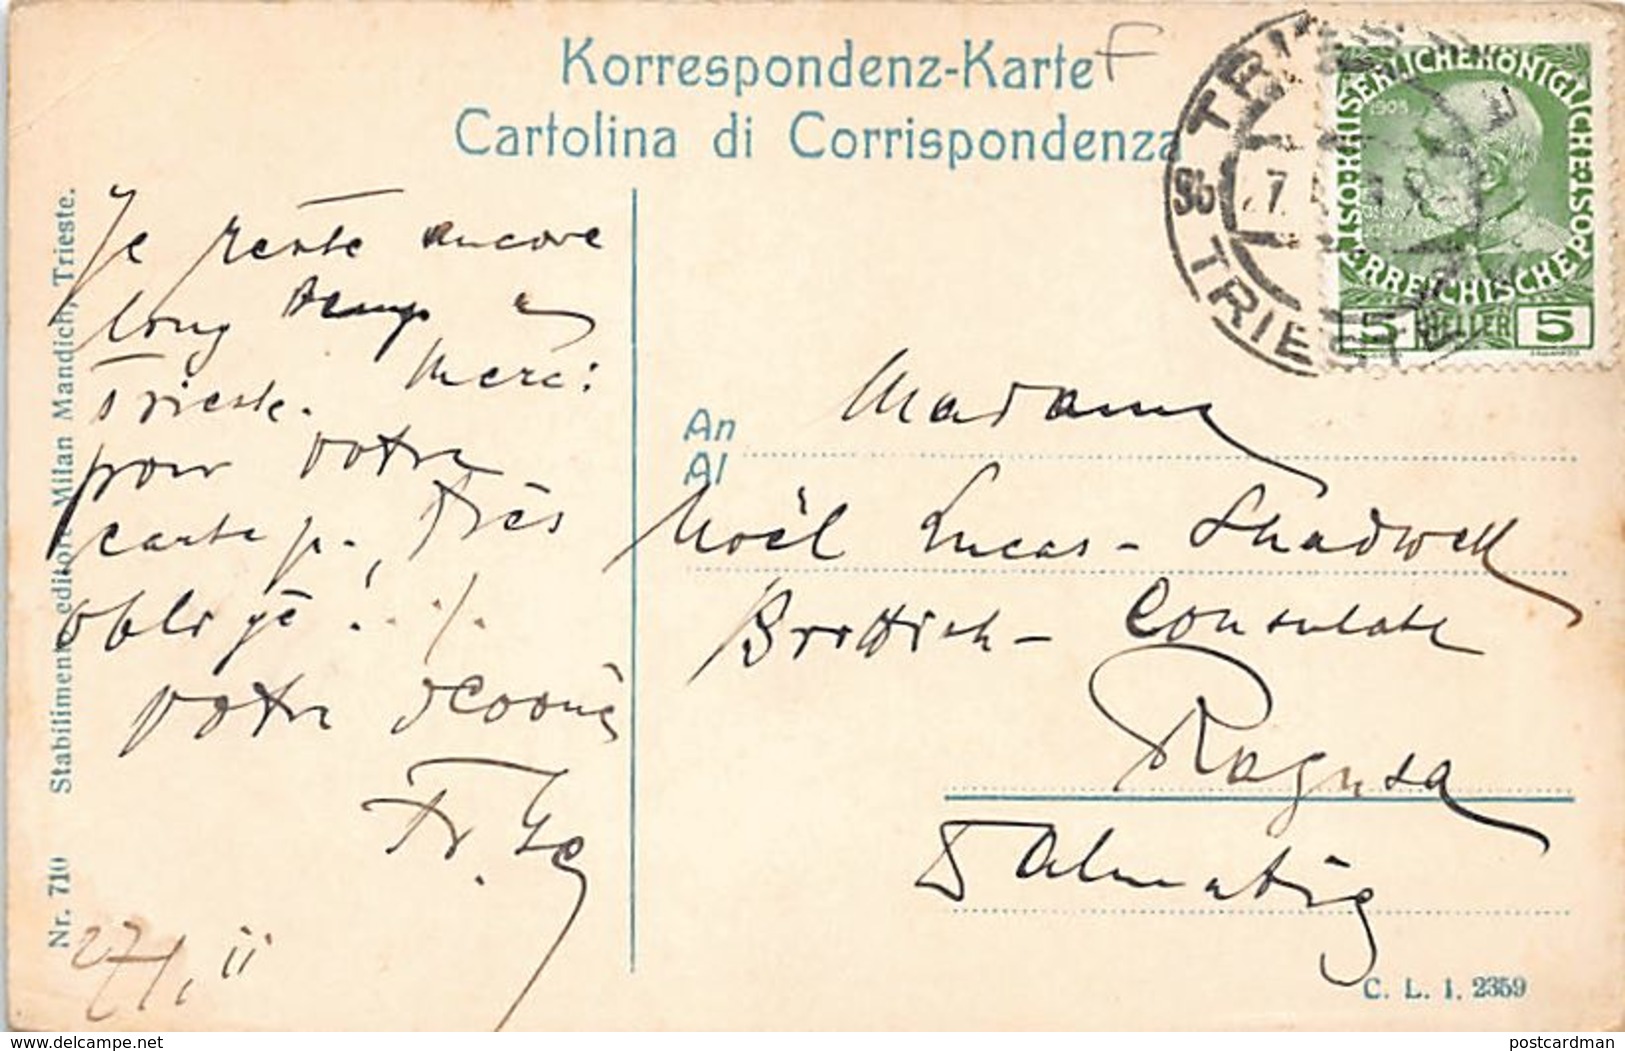 Korrespondenz-Karte F
Cartolina di Corrispondenza
TRIEST
9b
TRIESTE
KAISERLICHE KÖNIGLICHE ÖSTERREICHISCHE POST
1908
5 HELLER 5
Je reste encore
long temps en
Trieste. Merci
pour votre
carte p., Très
obligé! ./.
votre
Fr.
27/1, 11
An
Al
Madame
Noël Lucas-Shadwell
Brittish-Consulate
Ragusa
Dalmatia
Nr. 710 Stabilimento editore Milan Mandich, Trieste.
C. L. 1. 2359
www.delcampe.net
postcardman